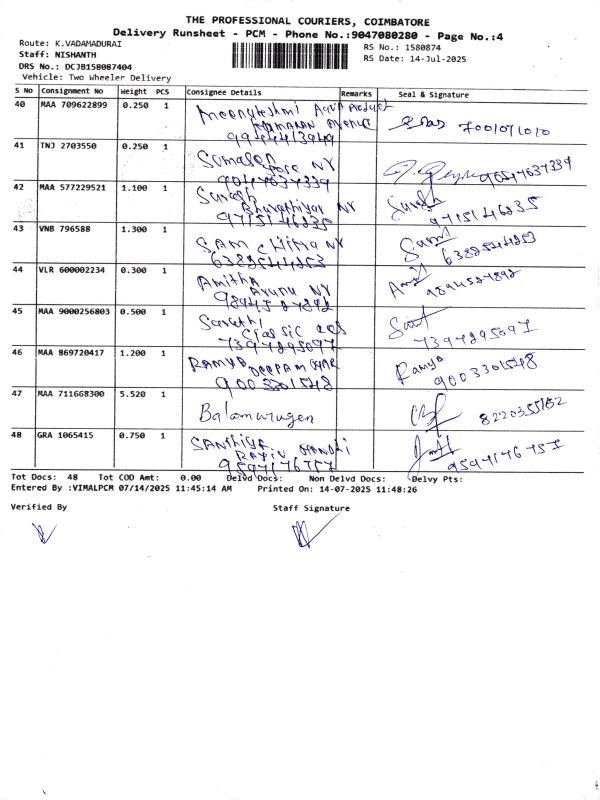 THE PROFESSIONAL COURIERS, COIMBATORE
Delivery Runsheet - PCM - Phone No.:9047080280 - Page No.:4
Route: K.VADAMADURAI
RS No.: 1580874
Staff: NISHANTH
RS Date: 14-Jul-2025
DRS No.: DCJB158087404
Vehicle: Two Wheeler Delivery
S No Consignment No Weight PCS Consignee Details Remarks Seal & Signature
40 MAA 709622899 0.250 1 Meenyteshmi Aqua Product
9944413949 7001071010
41 TNJ 2703550 0.250 1 NY
9047637339 9047637339
42 MAA 577229521 1.100 1 Suresh Suresh
Bharathiyar NY
9715146235 9715146235
43 VNB 796588 1.300 1 SAM Chitra NY Sam
6382544253 6382544253
44 VLR 600002234 0.300 1 Amitha
NY
9894527892 9894527892
45 MAA 9000256803 0.500 1 Sarathi
Classic
7397295097 7397295097
46 MAA 869720417 1.200 1 RAMYA DEEPAM Ramya
9003301548 9003301548
47 MAA 711668300 5.520 1 Balamurugen
48 GRA 1065415 0.750 1 SANthiya
RAJIV GANDHI
9597176757 9597176757
Tot Docs: 48 Tot COD Amt: 0.00 Delvd Docs: Non Delvd Docs: Delvy Pts:
Entered By :VIMALPCM 07/14/2025 11:45:14 AM Printed On: 14-07-2025 11:48:26
Verified By Staff Signature